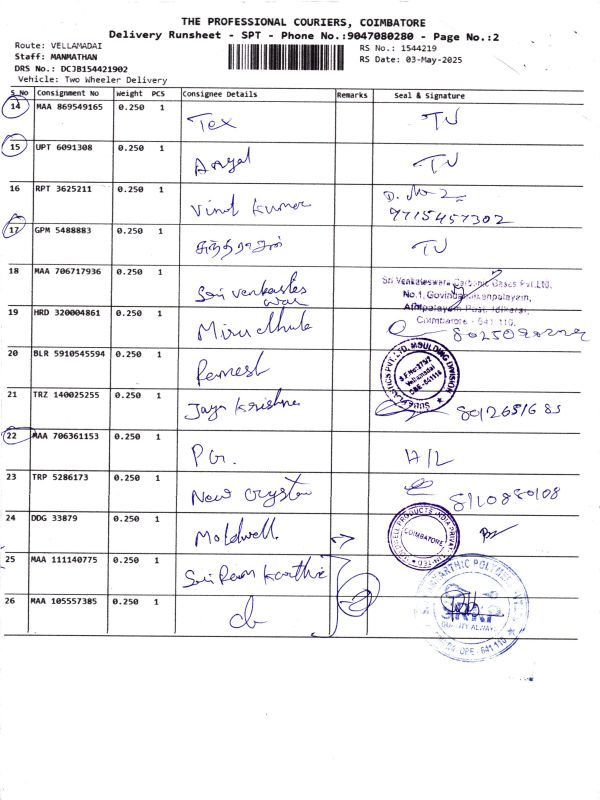 THE PROFESSIONAL COURIERS, COIMBATORE
Delivery Runsheet - SPT - Phone No.:9047080280 - Page No.:2
Route: VELLAMADAI
Staff: MANMATHAN
DRS No.: DCJB154421902
Vehicle: Two Wheeler Delivery
RS No.: 1544219
RS Date: 03-May-2025
S No Consignment No Weight PCS Consignee Details Remarks Seal & Signature
14 MAA 869549165 0.250 1 Tex TU
15 UPT 6091308 0.250 1 TU
16 RPT 3625211 0.250 1 Vinot Kumar
9715457302
17 GPM 5488883 0.250 1 TU
18 MAA 706717936 0.250 1 Sri Venkates
war
Sri Venkateswara Carbonic Gases Pvt.Ltd.
No.1, Govindanaickenpalayam,
Athipalayam Post, Idikarai,
Coimbatore - 641 110.
19 HRD 320004861 0.250 1 Mirudhula
20 BLR 5910545594 0.250 1 Ramesh
MOULDING DIVISION
S.F.No:375/2
Vellamadai
CBE-641110
21 TRZ 140025255 0.250 1 Jaya Krishna
22 MAA 706361153 0.250 1 H/L
23 TRP 5286173 0.250 1 New Crystan 8110880108
24 DDG 33879 0.250 1 Moldwell
PRODUCTS INDIA PRIVATE LIMITED
COIMBATORE
25 MAA 111140775 0.250 1 Sri Ram Karthic
26 MAA 105557385 0.250 1
QUALITY ALWAYS
641 110